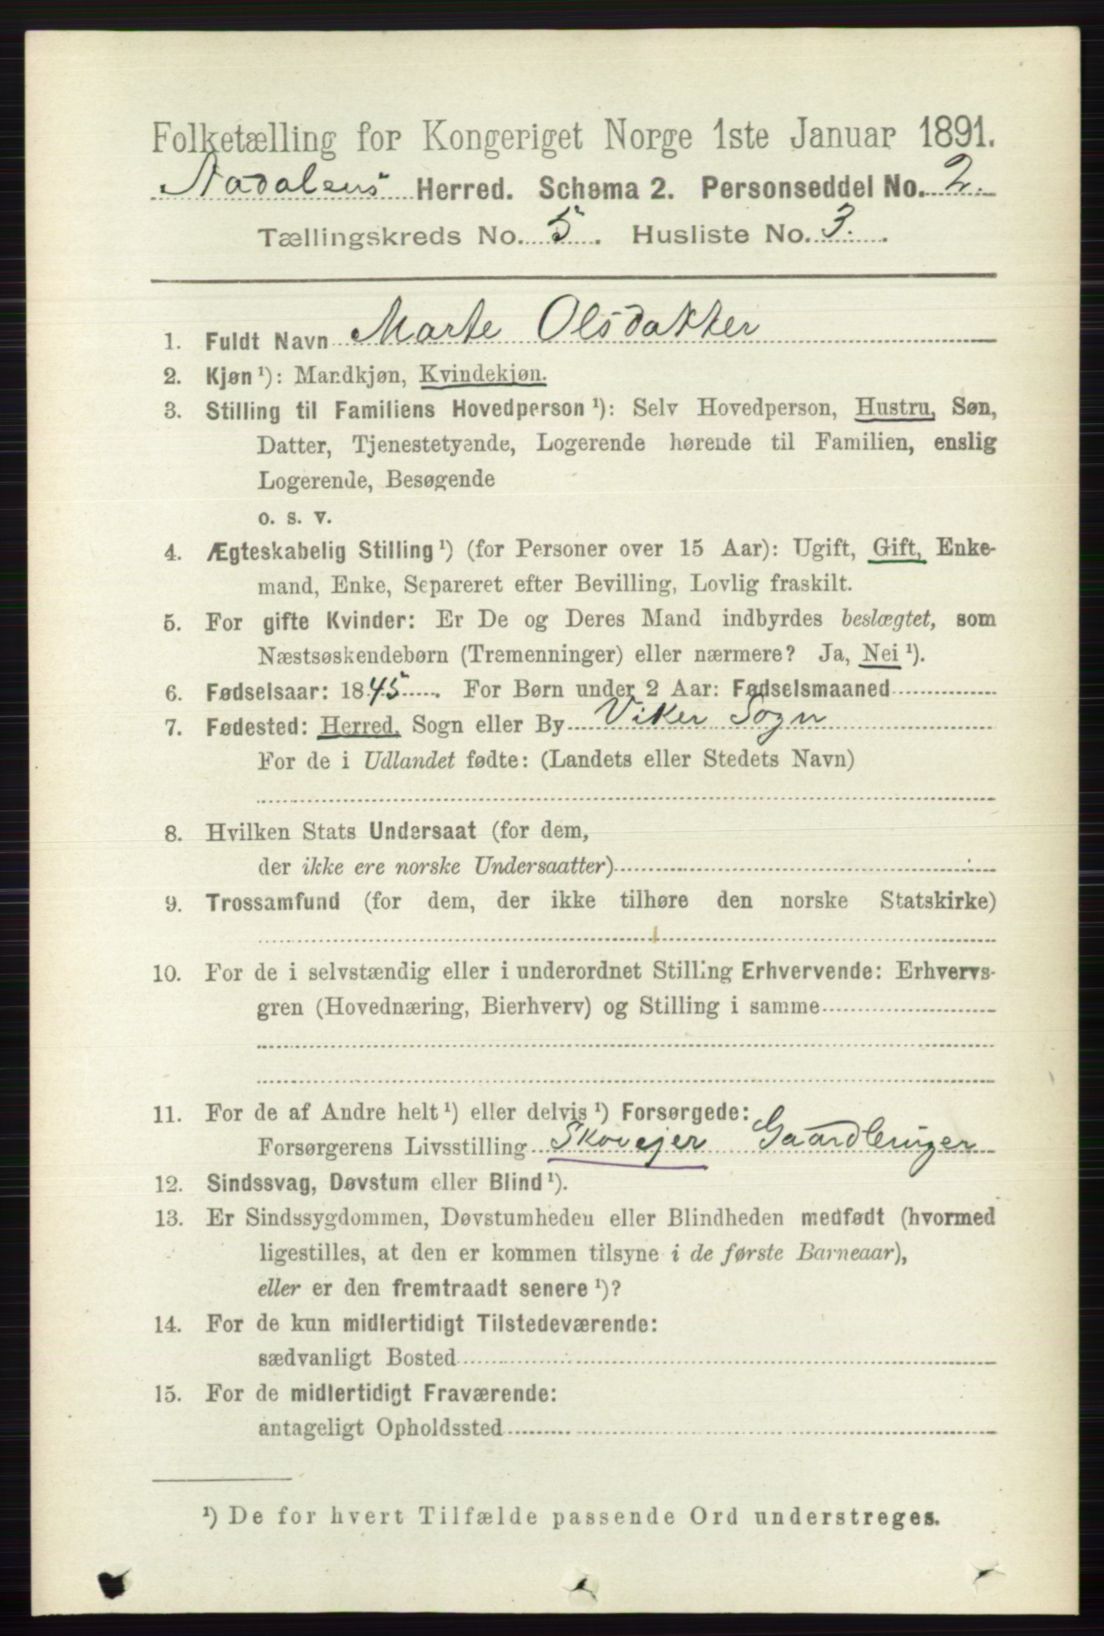 Folketælling for Kongeriget Norge 1ste Januar 1891.
Aadalens Herred. Schema 2. Personseddel No. 2.
Tællingskreds No. 5. Husliste No. 3.
1. Fuldt Navn Marte Olsdatter
2. Kjøn ¹): Mandkjøn, Kvindekjøn.
3. Stilling til Familiens Hovedperson ¹): Selv Hovedperson, Hustru, Søn,
Datter, Tjenestetyende, Logerende hørende til Familien, enslig
Logerende, Besøgende
o. s. v.
4. Ægteskabelig Stilling ¹) (for Personer over 15 Aar): Ugift, Gift, Enke-
mand, Enke, Separeret efter Bevilling, Lovlig fraskilt.
5. For gifte Kvinder: Er De og Deres Mand indbyrdes beslægtet, som
Næstsøskendebørn (Tremenninger) eller nærmere? Ja, Nei ¹).
6. Fødselsaar: 1845. For Børn under 2 Aar: Fødselsmaaned
7. Fødested: Herred, Sogn eller By Viker Sogn
For de i Udlandet fødte: (Landets eller Stedets Navn)
8. Hvilken Stats Undersaat (for dem,
der ikke ere norske Undersaatter)
9. Trossamfund (for dem, der ikke tilhøre den norske Statskirke)
10. For de i selvstændig eller i underordnet Stilling Erhvervende: Erhvervs-
gren (Hovednæring, Bierhverv) og Stilling i samme
11. For de af Andre helt ¹) eller delvis ¹) Forsørgede:
Forsørgerens Livsstilling Skovejer Gaardbruger
12. Sindssvag, Døvstum eller Blind ¹).
13. Er Sindssygdommen, Døvstumheden eller Blindheden medfødt (hvormed
ligestilles, at den er kommen tilsyne i de første Barneaar),
eller er den fremtraadt senere ¹)?
14. For de kun midlertidigt Tilstedeværende:
sædvanligt Bosted
15. For de midlertidigt Fraværende:
antageligt Opholdssted
¹) De for hvert Tilfælde passende Ord understreges.